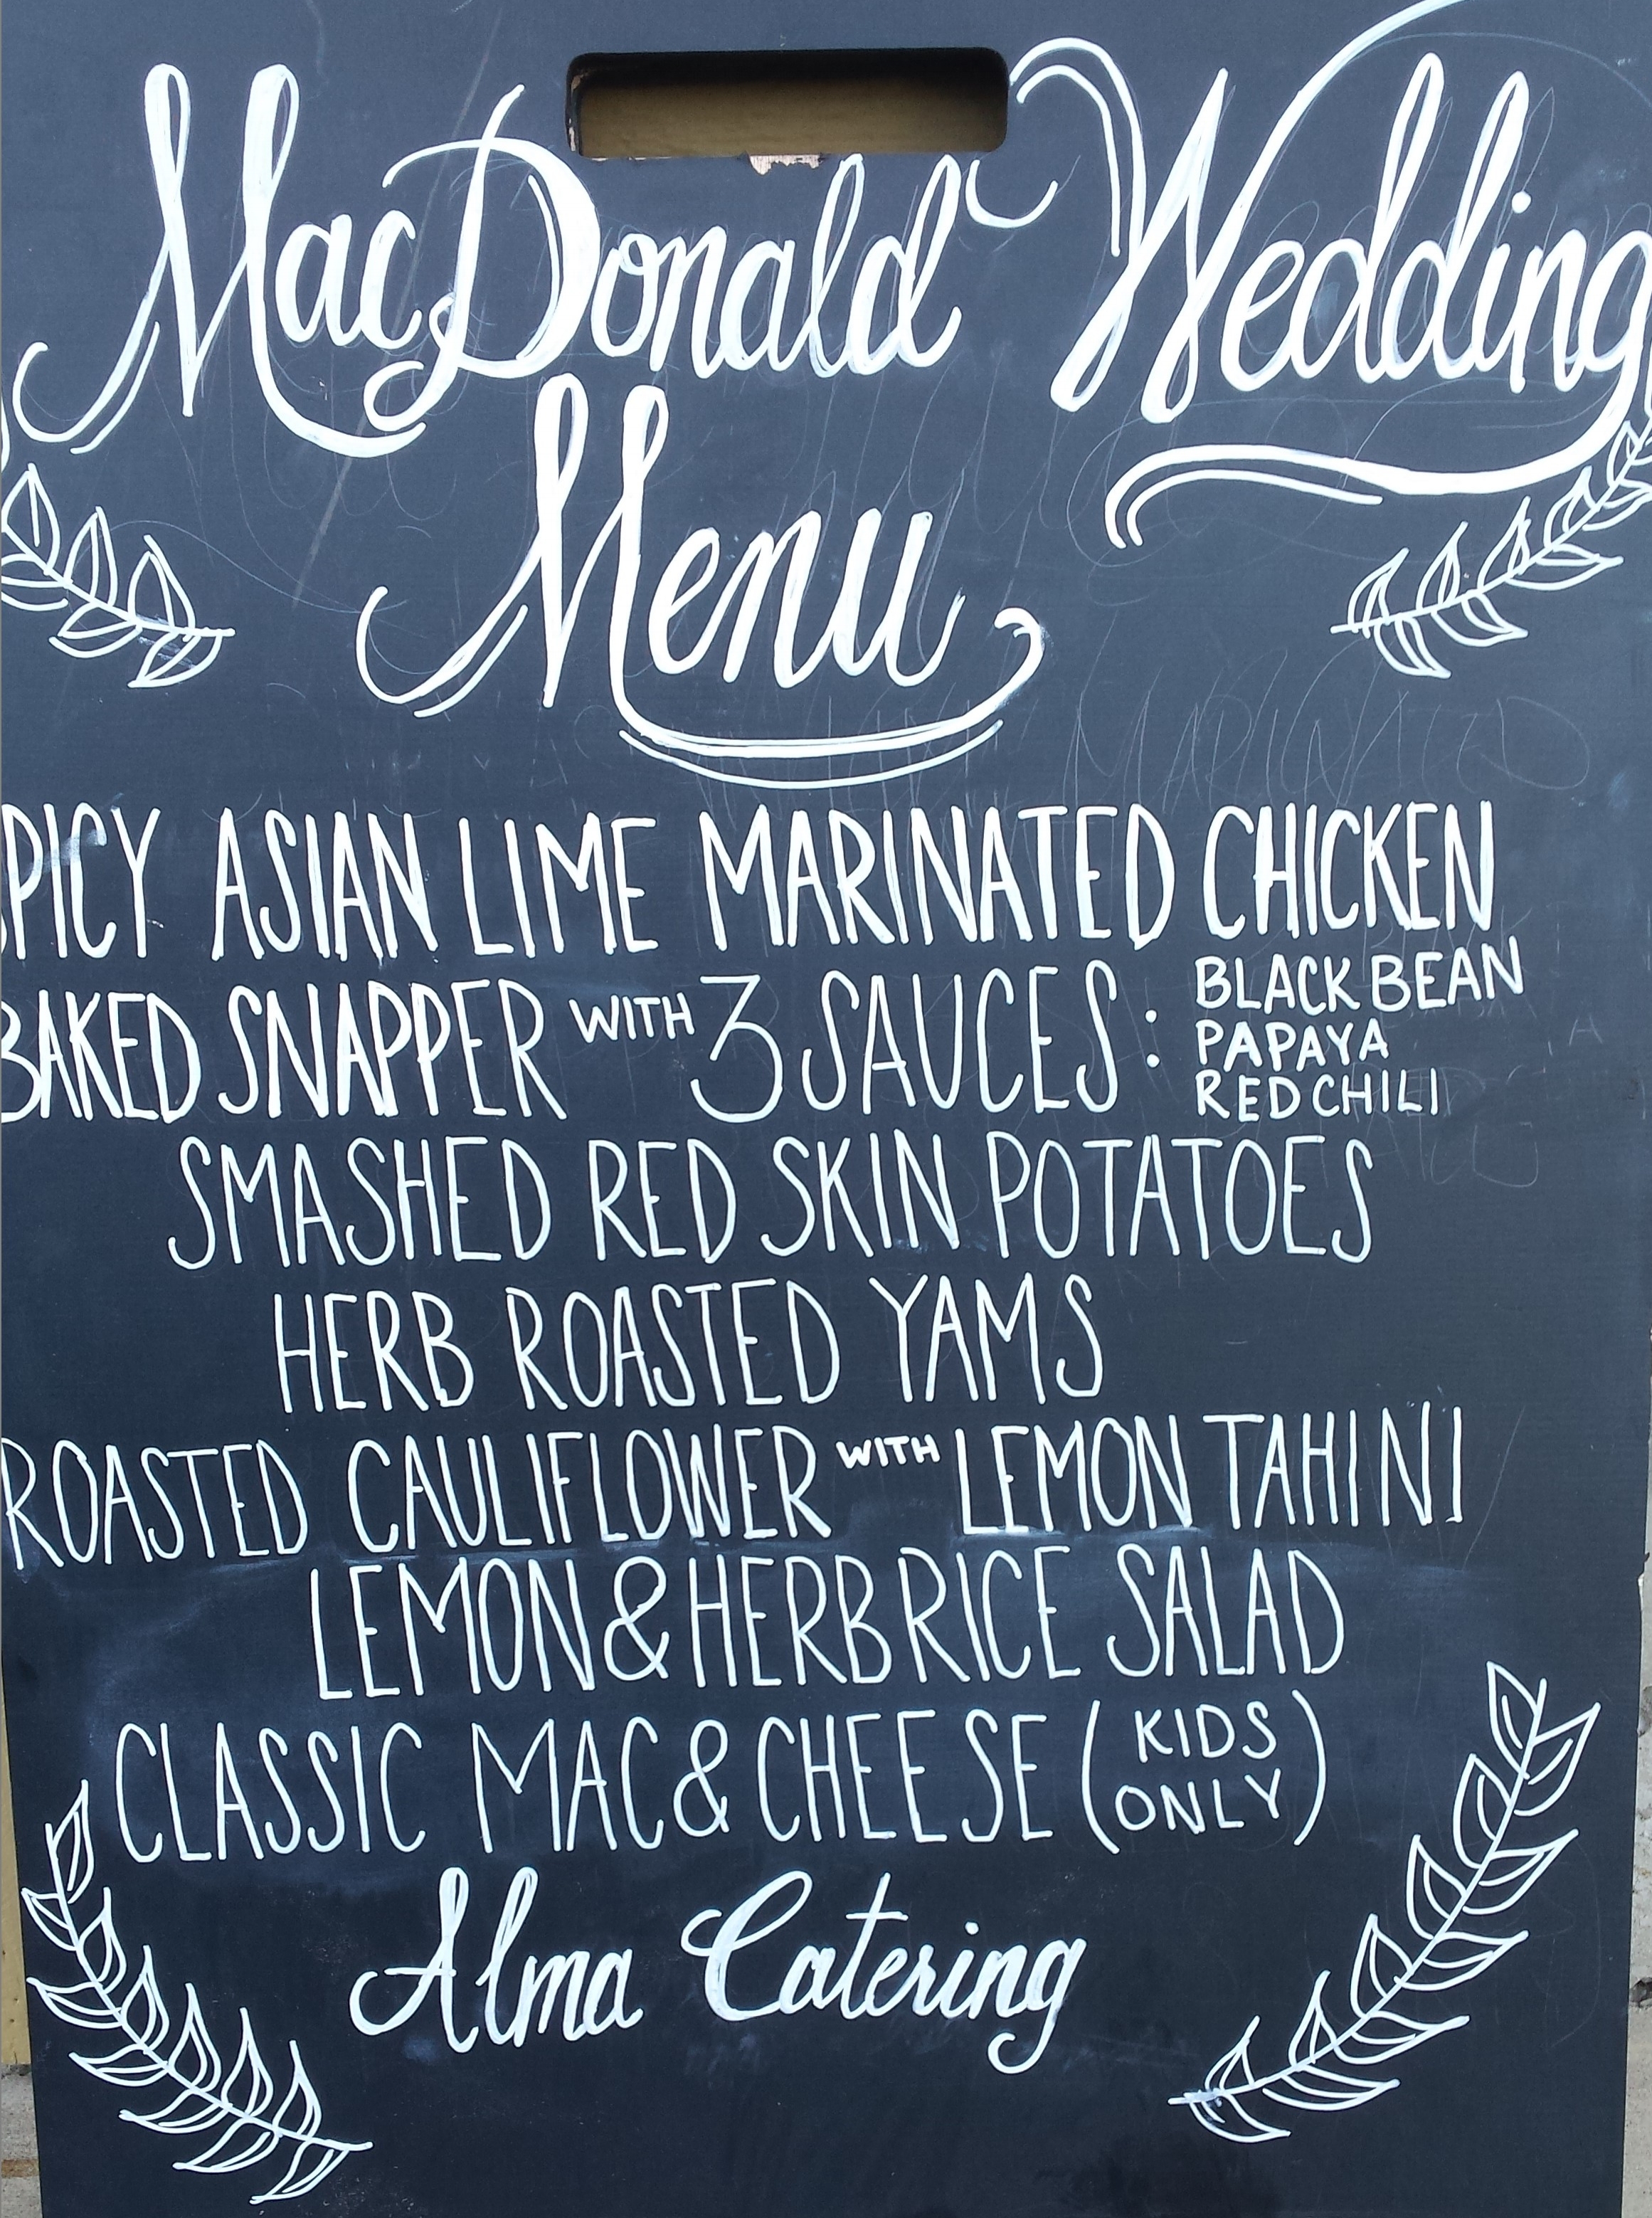 MacDonald Wedding
Menu
SPICY ASIAN LIME MARINATED CHICKEN
BAKED SNAPPER WITH 3 SAUCES: BLACK BEAN
PAPAYA
RED CHILI
SMASHED RED SKIN POTATOES
HERB ROASTED YAMS
ROASTED CAULIFLOWER WITH LEMON TAHINI
LEMON & HERB RICE SALAD
CLASSIC MAC & CHEESE (KIDS ONLY)
Alma Catering